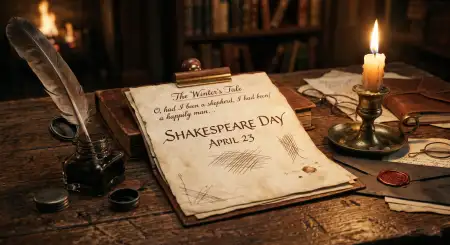 The Winter's Tale
O, had I been a shepherd, I had been
a happily man...
SHAKESPEARE DAY
APRIL 23